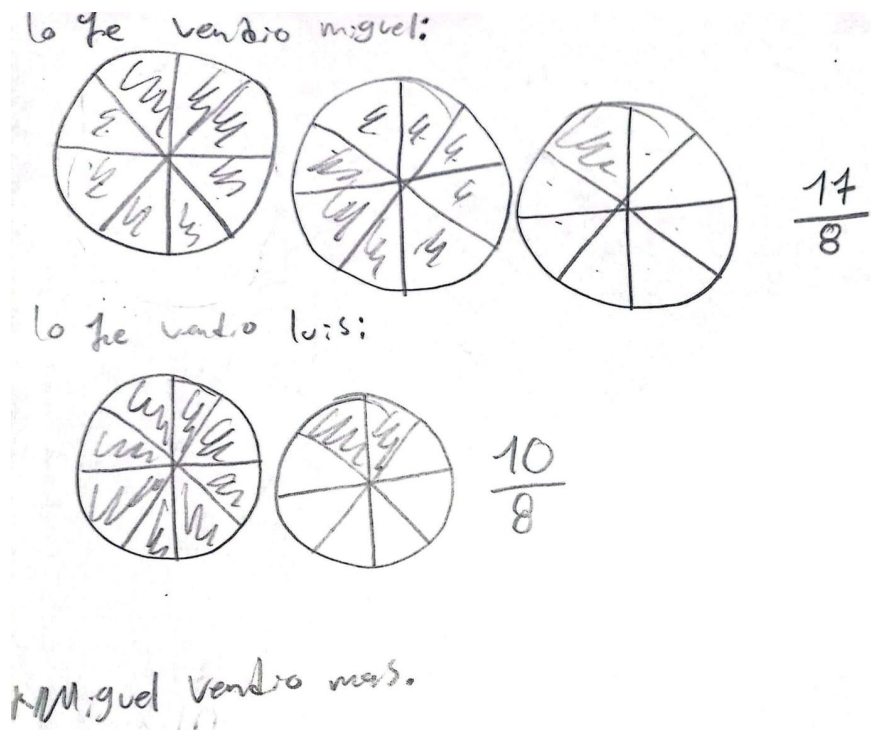 lo que vendio miguel:
17
8
lo que vendio luis:
10
8
Miguel vendio mas.